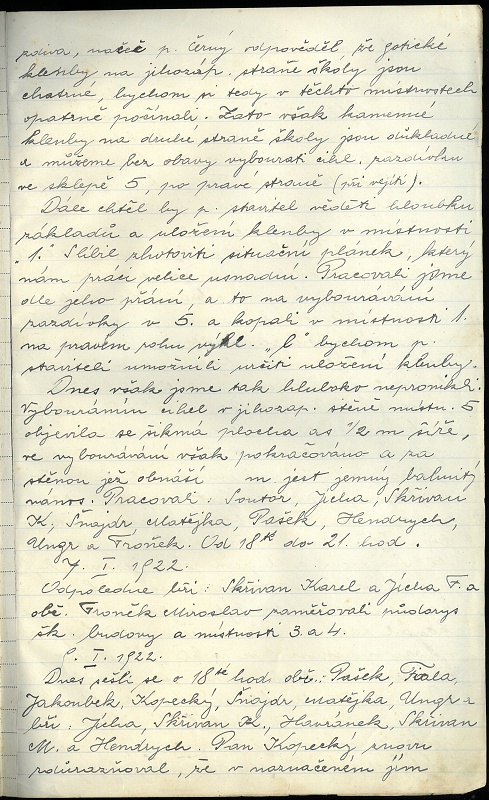 zdiva, načež p. Černý odpověděl, že gotické
klenby na jihozáp. straně školy jsou
chatrné, bychom si tedy v těchto místnostech
opatrně počínali. Zato však kamenné
klenby na druhé straně školy jsou důkladné
a můžeme bez obavy vybourati cihl. zazdívku
ve sklepě 5, po pravé straně (při vejití).
Dále chtěl by p. stavitel věděti hloubku
základů a uložení klenby v místnosti
"1." Slíbil zhotoviti situační plánek, který
nám práci velice usnadní. Pracovali jsme
dle jeho přání, a to na vybourávání
zazdívky v 5. a kopali v místnosti 1.
na pravém rohu vykl. "l" bychom p.
staviteli umožnili určiti uložení klenby.
Dnes však jsme tak hluboko nepronikli.
Vybouráním cihel v jihozap. stěně místn. 5
objevila se šikmá plocha as 1/2 m šíře,
ve vybourávání však pokračováno a za
stěnou jež obnáší m. jest jemný bahnitý
nános. Pracovali: Soutor, Jícha, Skřivan
K., Šnajdr, Matějka, Pašek, Hendrych,
Ungr a Froněk. Od 18té do 21. hod.
7. I. 1922.
Odpoledne bří: Skřivan Karel a Jícha F. a
obč. Froněk Miroslav zaměřovali půdorys
šk. budovy a místnosti 3. a 4.
I. 1922.
Dnes sešli se o 18té hod. obč.: Pašek, Fiala,
Jakoubek, Kopecký, Šnajdr, Matějka, Ungr a
bří: Jícha, Skřivan K., Havránek, Skřivan
M. a Hendrych. Pan Kopecký znovu
zdůrazňoval, že v naznačeném jím